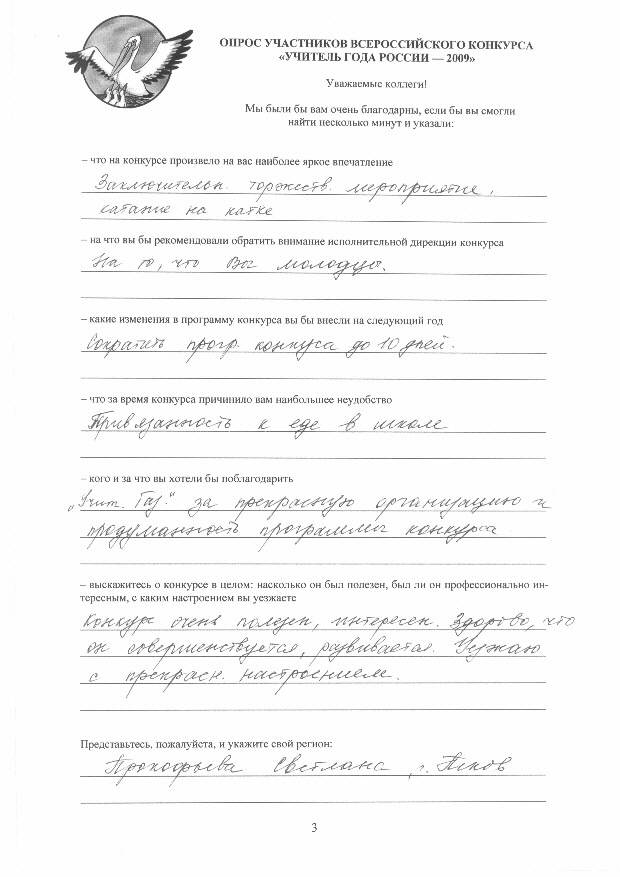 ОПРОС УЧАСТНИКОВ ВСЕРОССИЙСКОГО КОНКУРСА
«УЧИТЕЛЬ ГОДА РОССИИ — 2009»
Уважаемые коллеги!
Мы были бы вам очень благодарны, если бы вы смогли
найти несколько минут и указали:
– что на конкурсе произвело на вас наиболее яркое впечатление
Заключительн. торжеств. мероприятие,
катание на катке
– на что вы бы рекомендовали обратить внимание исполнительной дирекции конкурса
На то, что Вы молодцы.
– какие изменения в программу конкурса вы бы внесли на следующий год
Сократить прогр. конкуса до 10 дней.
– что за время конкурса причинило вам наибольшее неудобство
Привязанность к еде в школе
– кого и за что вы хотели бы поблагодарить
„Учит. Газ." за прекрасную организацию и
продуманность программы конкурса
– выскажитесь о конкурсе в целом: насколько он был полезен, был ли он профессионально ин-
тересным, с каким настроением вы уезжаете
Конкурс очень полезен, интересен. Здорово, что
он совершенствуется, развивается. Уезжаю
с прекрасн. настроением.
Представьтесь, пожалуйста, и укажите свой регион:
Прокофьева Светлана, г. Псков
3